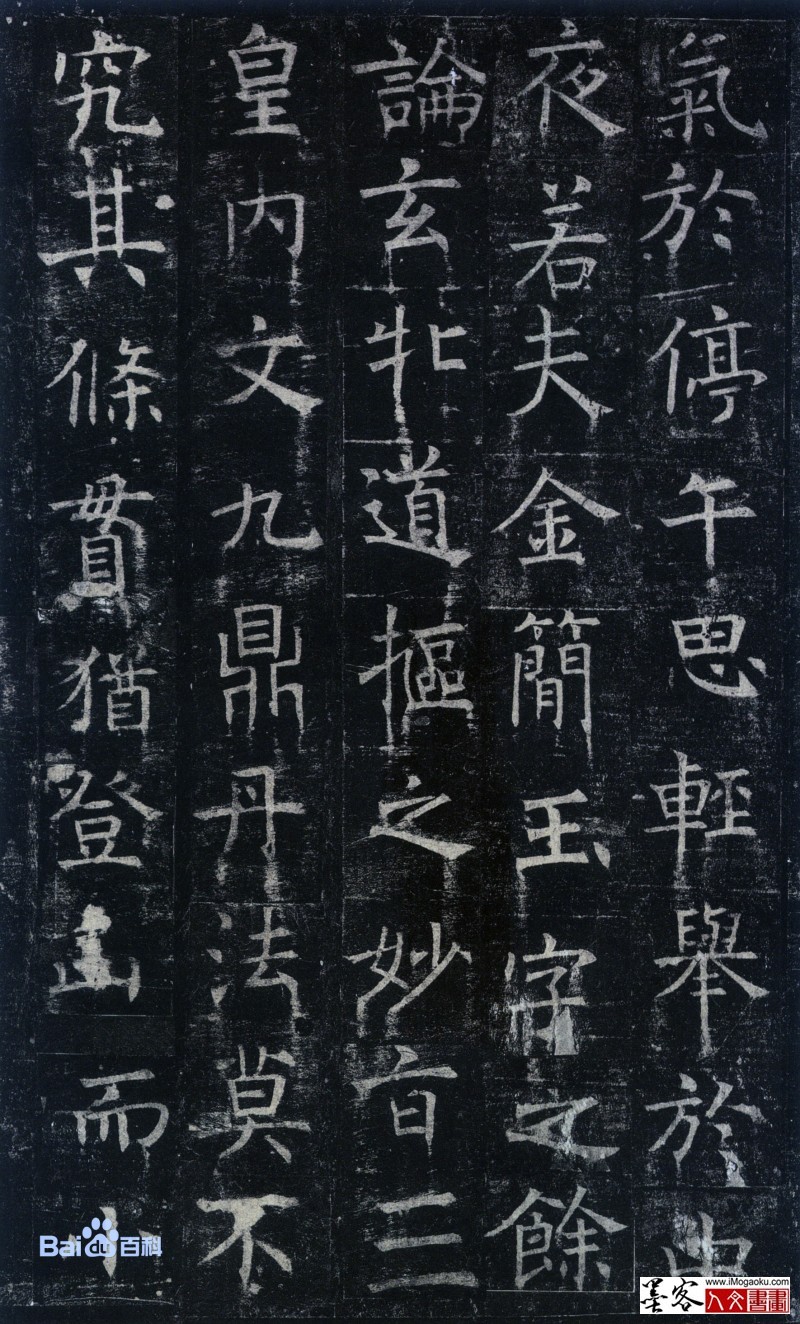 氣於停午思輕舉於中
夜若夫金簡玉字之餘
論玄牝道摳之妙旨三
皇内文九鼎丹法莫不
究其條貫猶登山而小
Bai du 百科
www.iMogaoku.com
墨客 人文書畫